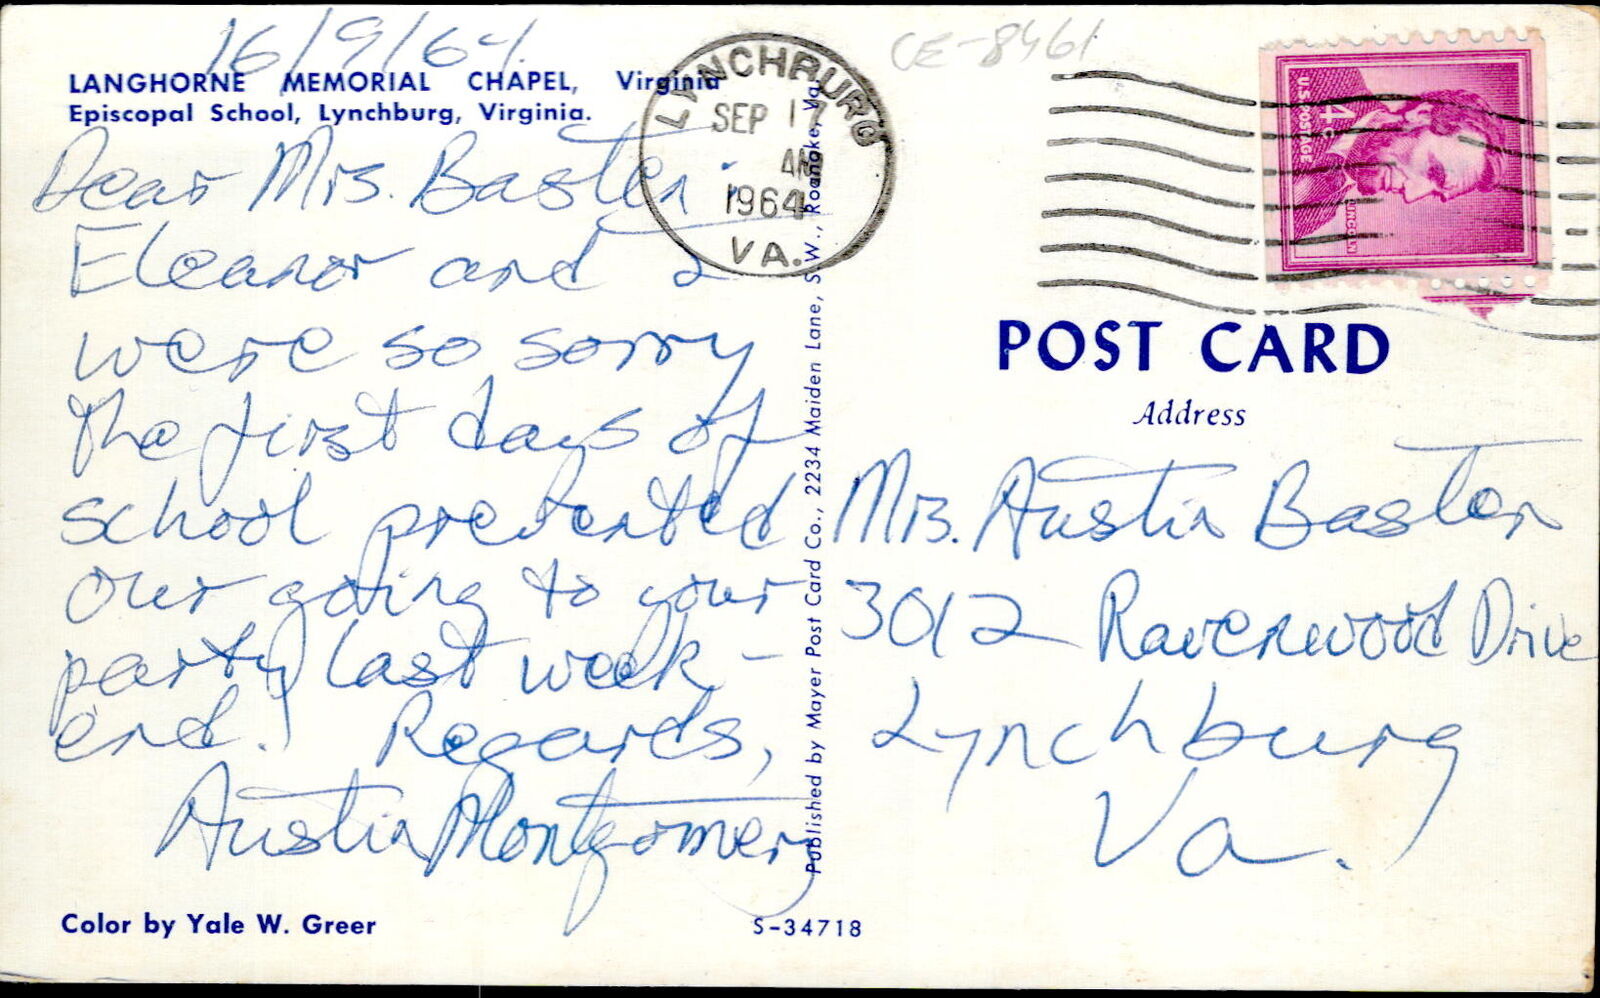 16/9/64.
LANGHORNE MEMORIAL CHAPEL, Virginia
Episcopal School, Lynchburg, Virginia.
Dear Mrs. Baster:
Eleanor and I
were so sorry
the first days of
school prevented
our going to your
party last week-
end. Regards,
Austin Montgomery
Color by Yale W. Greer
S-34718
Published by Mayer Post Card Co., 2234 Maiden Lane, S.W., Roanoke, Va.
LYNCHBURG
SEP 17
AM
1964
VA.
CE-8461
U.S. POSTAGE
4¢
LINCOLN
POST CARD
Address
Mrs. Austin Baster
3012 Ravenwood Drive
Lynchburg
Va.